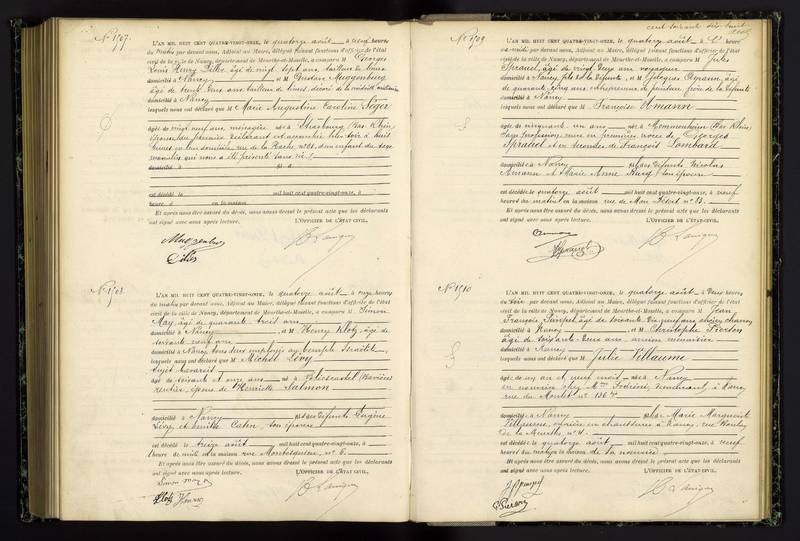 N° 1507.
L'AN MIL HUIT CENT QUATRE-VINGT-ONZE, le quatorze août à neuf heures
du matin par devant nous, Adjoint au Maire, délégué faisant fonctions d'officier de l'état
civil de la ville de Nancy, département de Meurthe-et-Moselle, a comparu M Georges
Louis Henry âgé de vingt sept ans, tailleur de
domicilié à Nancy et M Gustave Muggenburg
âgé de trente deux ans tailleur de décoré de la médaille militaire
domicilié à Nancy
lesquels nous ont déclaré que M Marie Augustine Caroline
âgée de vingt neuf ans ménagère née à Strasbourg (Bas Rhin)
épouse du premier déclarant est accouchée hier soir à huit
heures en leur domicile, rue de la d'un enfant du sexe
masculin qui nous a été présenté sans vie.
domicilié à
est décédé le mil huit cent quatre-vingt-onze, à
heure d en la maison
Et après nous être assuré du décès, nous avons dressé le présent acte que les déclarants
ont signé avec nous après lecture. L'OFFICIER DE L'ÉTAT CIVIL,
N° 1508.
L'AN MIL HUIT CENT QUATRE-VINGT-ONZE, le quatorze août à onze heures
du matin par devant nous, Adjoint au Maire, délégué faisant fonctions d'officier de l'état
civil de la ville de Nancy, département de Meurthe-et-Moselle, a comparu M Simon
May, âgé de quarante trois ans
domicilié à Nancy et M Henry Klotz âgé de
soixante neuf ans
domicilié à Nancy, tous deux employés au temple Israélite,
lesquels nous ont déclaré que M Michel Lévy
sujet bavarois
âgé de soixante et onze ans né à Bliescastel (Bavière)
rentier, époux de Salmon
domicilié à Nancy fils des défunts Eugène
Lévy et Cahen, son épouse
est décédé le treize août mil huit cent quatre-vingt-onze, à
heure de midi en la maison rue Montesquieu, n° 6.
Et après nous être assuré du décès, nous avons dressé le présent acte que les déclarants
ont signé avec nous après lecture. L'OFFICIER DE L'ÉTAT CIVIL,
Simon May
Klotz Henry
cent soixante dix huit
N° 1509
L'AN MIL HUIT CENT QUATRE-VINGT-ONZE, le quatorze août à heure
par devant nous, Adjoint au Maire, délégué faisant fonctions d'officier de l'état
civil de la ville de Nancy, département de Meurthe-et-Moselle, a comparu M Jules
Sprauel, âgé de vingt deux ans voyageur
domicilié à Nancy, fils de la défunte, et M Amann, âgé
de quarante cinq ans, entrepreneur de peinture, frère de la défunte
domicilié à Nancy
lesquels nous ont déclaré que M Françoise Amann
âgée de cinquante un ans née à Mommenheim (Bas Rhin)
sans profession, veuve en premières noces de Georges
Sprauel et en secondes de François Lombard
domicilié à Nancy fille des défunts Nicolas
Amann et Marie Anne son épouse
est décédée le quatorze août mil huit cent quatre-vingt-onze, à neuf
heures du matin en la maison rue de Mon Désert n° 13.
Et après nous être assuré du décès, nous avons dressé le présent acte que les déclarants
ont signé avec nous après lecture. L'OFFICIER DE L'ÉTAT CIVIL,
N° 1510
L'AN MIL HUIT CENT QUATRE-VINGT-ONZE, le quatorze août à deux heures
du soir par devant nous, Adjoint au Maire, délégué faisant fonctions d'officier de l'état
civil de la ville de Nancy, département de Meurthe-et-Moselle, a comparu M Jean
François âgé de soixante
domicilié à Nancy et M Christophe Pierson
âgé de soixante deux ans ancien menuisier
domicilié à Nancy
lesquels nous ont déclaré que M Julie Villaume
âgée de un an et neuf mois née à Nancy
en nourrice chez Mme demeurant à Nancy
rue du Montet n° 136
domicilié à Nancy fille de Marie Marguerite
Villaume, ouvrière en chaussures à Nancy, rue
de la Meurthe, n° 4.
est décédée le quatorze août mil huit cent quatre-vingt-onze, à neuf
heures du matin en la maison de sa nourrice
Et après nous être assuré du décès, nous avons dressé le présent acte que les déclarants
ont signé avec nous après lecture. L'OFFICIER DE L'ÉTAT CIVIL,